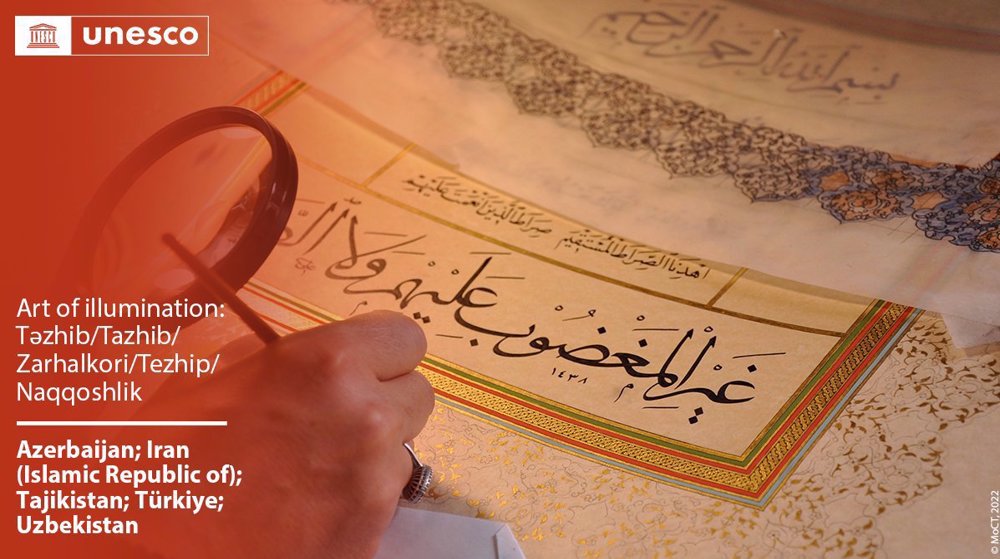 unesco
بسم الله الرحمن الرحيم
اهْدِنَا الصِّرَاطَ الْمُسْتَقِيمَ صِرَاطَ الَّذِينَ أَنْعَمْتَ عَلَيْهِمْ
غَيْرِ الْمَغْضُوبِ عَلَيْهِمْ وَلَا
١٤٣٨
Art of illumination:
Təzhib/Tazhib/
Zarhalkori/Tezhip/
Naqqoshlik
Azerbaijan; Iran
(Islamic Republic of);
Tajikistan; Türkiye;
Uzbekistan
© MoCT, 2022